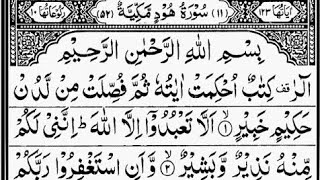 اٰیَاتُهَا ١٢٣ (١١) سُوْرَةُ هُوْدٍ مَكِّيَّةٌ (٥٢) رُكُوْعَاتُهَا ١٠
بِسْمِ اللّٰهِ الرَّحْمٰنِ الرَّحِيْمِ
الٓرٰ قف كِتٰبٌ اُحْكِمَتْ اٰيٰتُهٗ ثُمَّ فُصِّلَتْ مِنْ لَّدُنْ
حَكِيْمٍ خَبِيْرٍ ۙ﴿١﴾ اَلَّا تَعْبُدُوْۤا اِلَّا اللّٰهَ ؕ اِنَّنِيْ لَكُمْ
مِّنْهُ نَذِيْرٌ وَّبَشِيْرٌ ۙ﴿٢﴾ وَّاَنِ اسْتَغْفِرُوْا رَبَّكُمْ